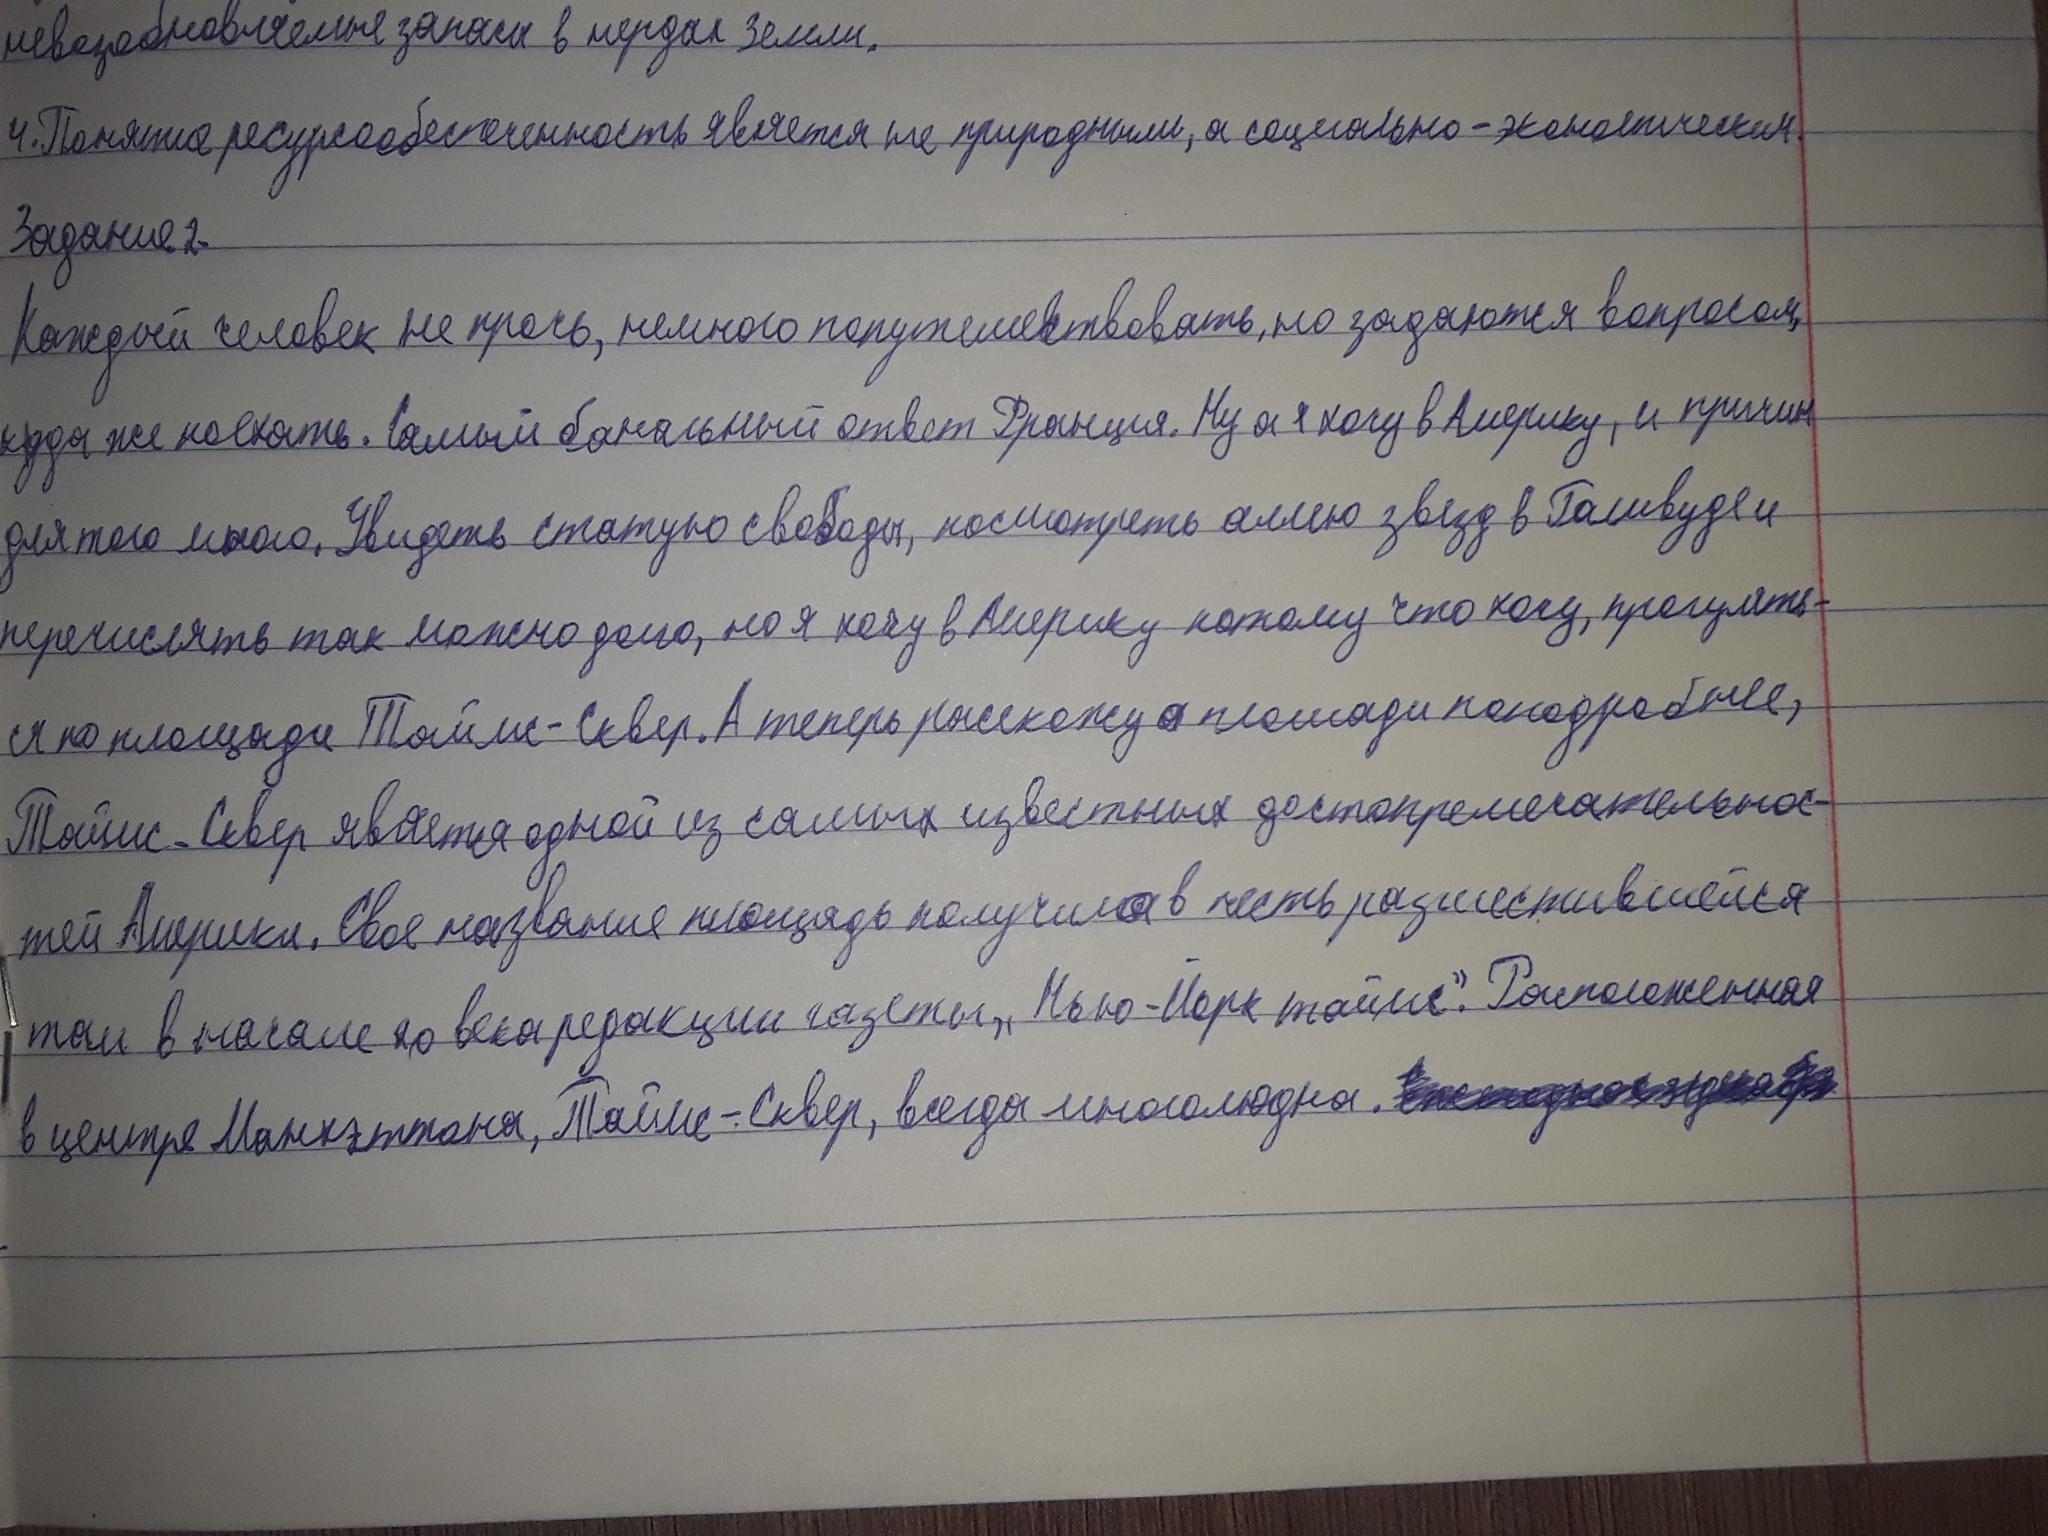 невозобновляемые запасы в нердах Земли.
4. Понятие ресурсообеспеченность является не природным, а социально-экономическим.
Задание 2.
Каждый человек не прочь, немного попутешествовать, но задаются вопросом,
куда же поехать. Самый банальный ответ Франция. Ну а я хочу в Америку, и причин
для того много. Увидеть статую свободы, посмотреть аллею звезд в Голивуде и
перечислять так можно долго, но я хочу в Америку потому что хочу, прогулять-
ся по площади Таймс-Сквер. А теперь расскажу о площади поподробнее,
Таймс-Сквер является одной из самых известных достопремечательнос-
тей Америки. Свое название площадь получила в честь разместившейся
там в начале 20 века редакции газеты „Нью-Йорк таймс". Расположенная
в центре Манхэттана, Таймс-Сквер, всегда многолюдна.